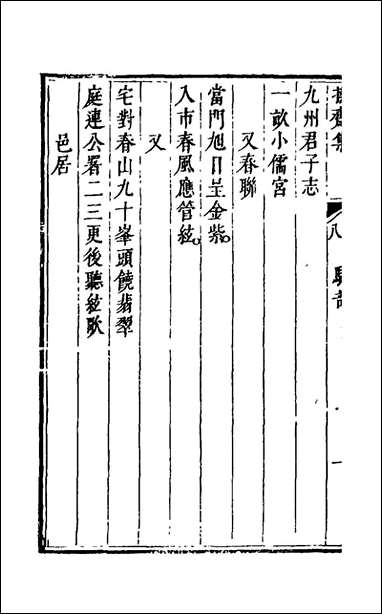 齋集
九州君子志
一畝小儒宮
又春聯
當門旭日呈金紫
入市春風應管絃
又
宅對春山九十峯頭饒翡翠
庭連公署二三更後聽絃歌
邑居